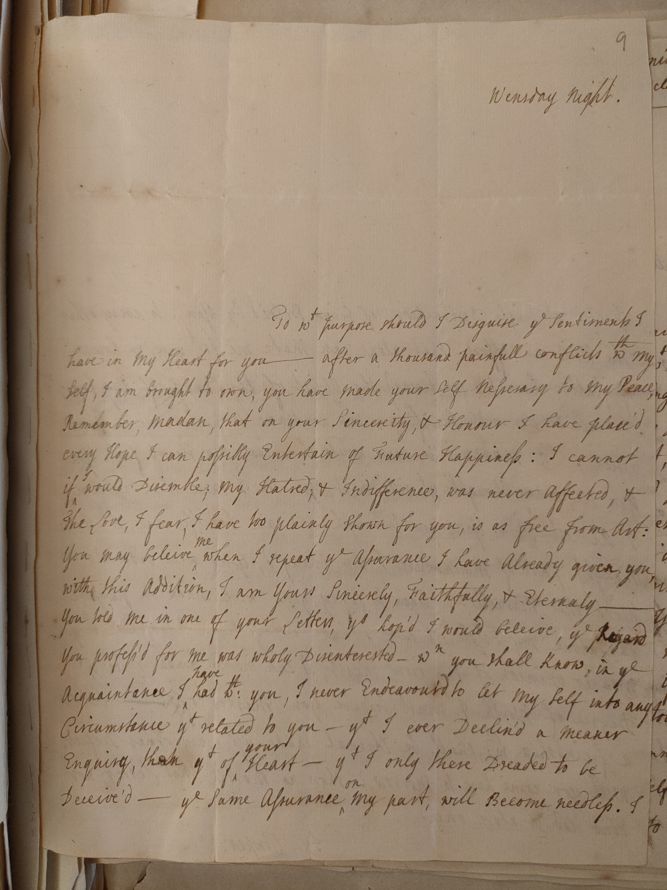 9
Wensday Night.
To wt Purpose should I Disguise ye Sentiments I
have in My Heart for you — after a thousand painfull conflicts wth my
self, I am brought to own, you have made your self Nessesary to My Peace,
Remember, Madam, that on your Sincerity, & Honour I have place'd
every Hope I can possibly Entertain of Future Happiness: I cannot
if I would Disemble; My Hatred, & Indifference, was never Affected, &
the Love, I fear, I have too plainly shown for you, is as free from Art:
You may beleive me when I repeat ye Assurance I have Already given you,
with this Addition, I am Yours Sincerely, Faithfully, & Eternaly —
You told me in one of your Letters, you hop'd I would beleive, ye Regard
You profess'd for me was wholy Disinterested — wn you shall know, in ye
Acquaintance I have had wth: you, I never Endeavour'd to let My self into any
Circumstance yt related to you — yt I ever Declin'd a meaner
Enquiry, than yt of your Heart — yt I only there Dreaded to be
Deceive'd — ye Same Assurance on My part, will Become needless. I